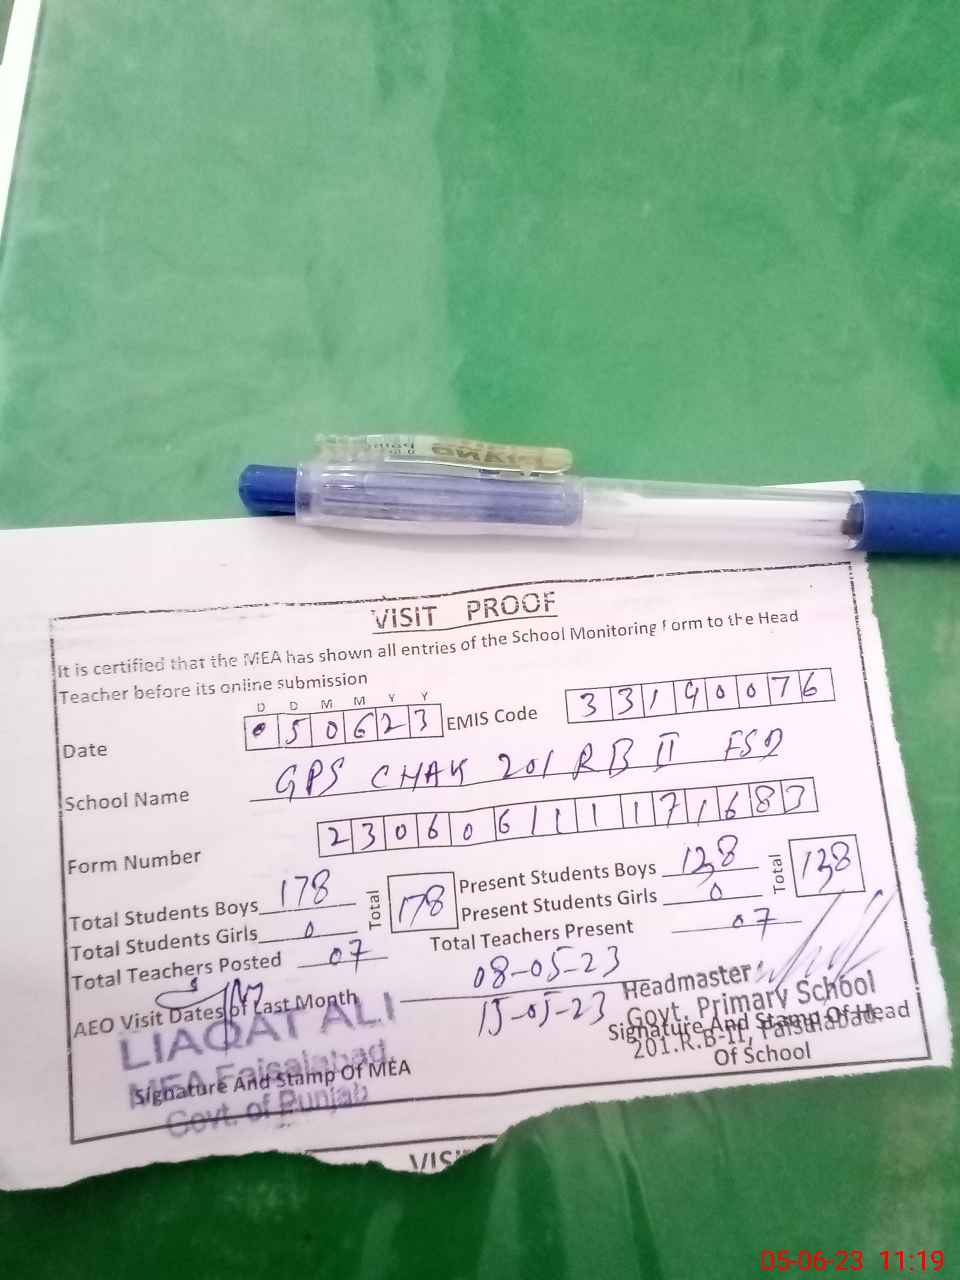 PIANO
VISIT PROOF
It is certified that the MEA has shown all entries of the School Monitoring Form to the Head
Teacher before its online submission
D D M M Y Y
Date 050623 EMIS Code 33190076
School Name GPS CHAK 201 RB II FSD
Form Number 230606111171683
Total Students Boys 178 Total 178 Present Students Boys 138 Total 138
Total Students Girls 0 Present Students Girls 0
Total Teachers Posted 07 Total Teachers Present 07
AEO Visit Dates of Last Month 08-05-23
15-05-23
LIAQAT ALI
MEA Faisalabad
Govt. of Punjab
Signature And Stamp Of MEA
Headmaster
Govt. Primary School
201.R.B-II, Faisalabad.
Signature And Stamp Of Head
Of School
05-06-23 11:19